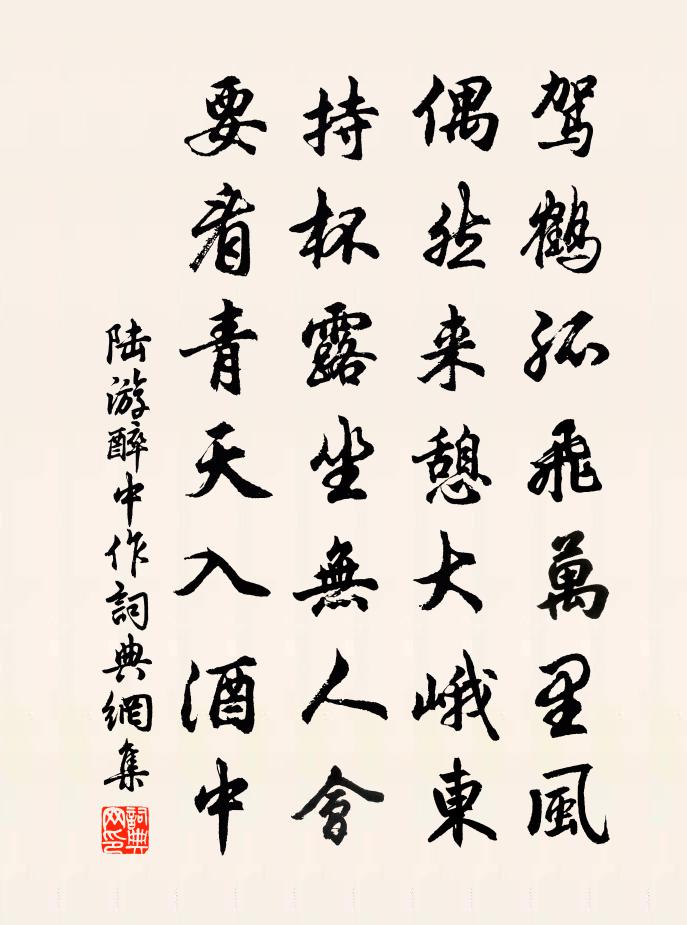 驾鹤孤飛萬里風
偶然来憩大峨東
持杯露坐無人會
要看青天入酒中
陆游醉中作詞典網集
詞典
网印